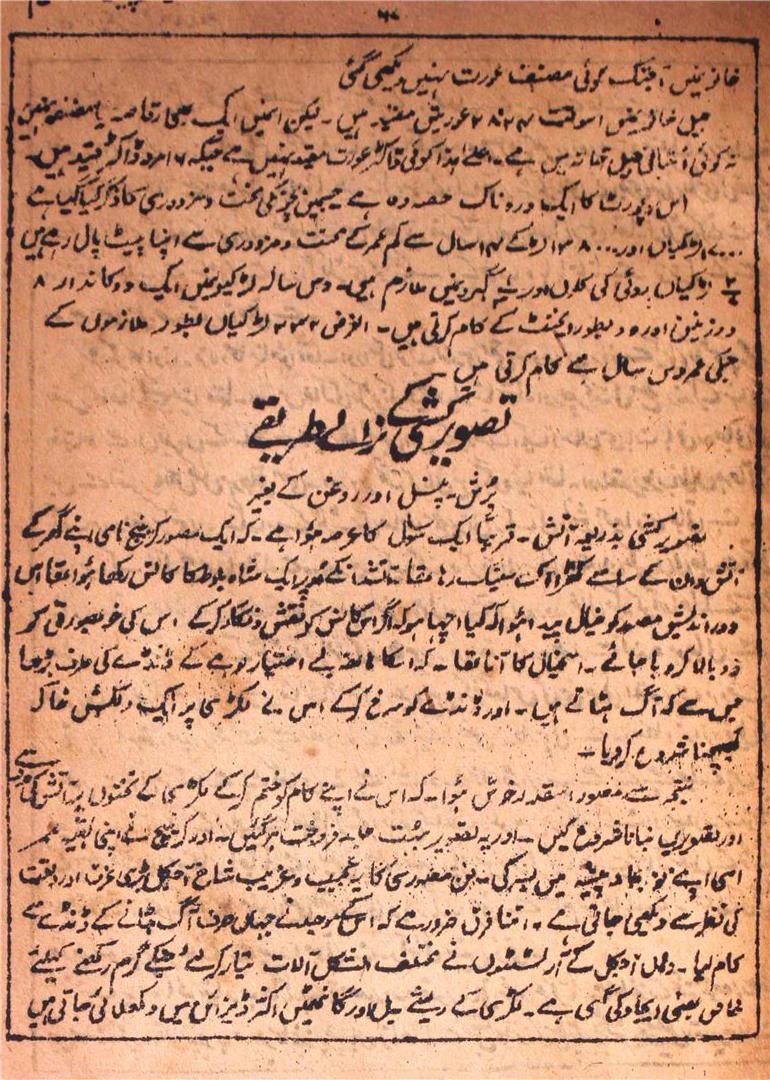 ۶۸
خانہ میں آجتک کوئی مصنف عورت نہیں دیکھی گئی
جیل خانہ میں اسوقت ۲۸۲۷ عورتیں مقید ہیں۔ لیکن انمیں ایک بھی رقاصہ یا مصنفہ نہیں
نہ کوئی جیل خانہ میں ہے۔ اعلےٰ ہذا کوئی ڈاکٹر عورت مقید نہیں ہے جبکہ ۶ مرد ڈاکٹر قید ہیں۔
اس رپورٹ کا ایک دردناک حصہ وہ ہے جسمیں بچونکی محنت و مزدوری کا ذکر کیا گیا ہے
لڑکیاں اور ۳۸۰۰۰ لڑکے ۱۴ سال سے کم عمر کے محنت و مزدوری سے اپنا پیٹ پال رہے ہیں
لڑکیاں روئی کی کلوں اور گھرونمیں ملازم ہیں۔ دس سالہ لڑکیونمیں ایک دوکاندار ۸
درزنیں اور ۵ بطور ایجنٹ کے کام کرتی ہیں۔ الغرض ۲۳۲ لڑکیاں بطور ملازموں کے
جنکی عمر دس سال ہے کام کرتی ہیں
تصویر کشی کے نرالے طریقے
برش۔ پنسل اور روغن کے بغیر
تصویر کشی بذریعہ آتش۔ قریباً ایک سو سال کا عرصہ ہوا ہے۔ کہ ایک مصور کرینچ نامی اپنے گھر کے
آتشدان کے سامنے کھڑا آگ سینک رہا تھا آتشدانکے اوپر ایک شاہ بلوط کا کانس رکھا ہوا تھا اس
دور اندیش مصور کو خیال پیدا ہوا کہ کیا اچھا ہو کہ اگر اس کانس کو نقش و نگار کرکے اس کی خوبصورتی کو
دوبالا کر دیا جائے۔ اسخیال کا آنا تھا۔ کہ اسکا ہاتھ بے اختیار لوہے کے ڈنڈے کی طرف بڑھا
جس سے کہ آگ ہٹاتے ہیں۔ اور ڈنڈے کو سرخ کرکے اس نے لکڑی پر ایک دلکش خاکہ
کھینچنا شروع کر دیا۔
نتیجہ سے مصور اسقدر خوش ہوا۔ کہ اس نے اپنے کام کو ختم کرکے لکڑی کے تختوں پر آتش کی سے
اور تصویریں بنانا شروع کیں۔ اور یہ تصویریں بہت جلد فروخت ہوگئیں۔ اور کرینچ نے اپنی بقیہ عمر
اسی اپنے نو ایجاد پیشہ میں بسر کی۔ فن مصوری کا یہ عجیب و غریب شاخ آجکل بڑی عزت اور وقعت
کی نظر سے دیکھی جاتی ہے۔ اتنا فرق ضرور ہے کہ اس کے موجد نے جہاں صرف آگ ہٹانے کے ڈنڈے سے
کام لیا۔ وہاں آجکل کے آرٹسٹوں نے مختلف الشکل آلات تیار کر لئے جنکے گرم رکھنے کیلئے
خاص بھٹی ایجاد کی گئی ہے۔ لکڑی کے ریشے بل اور گانٹھیں اکثر ڈیزائن میں دکھلائی جاتی ہیں